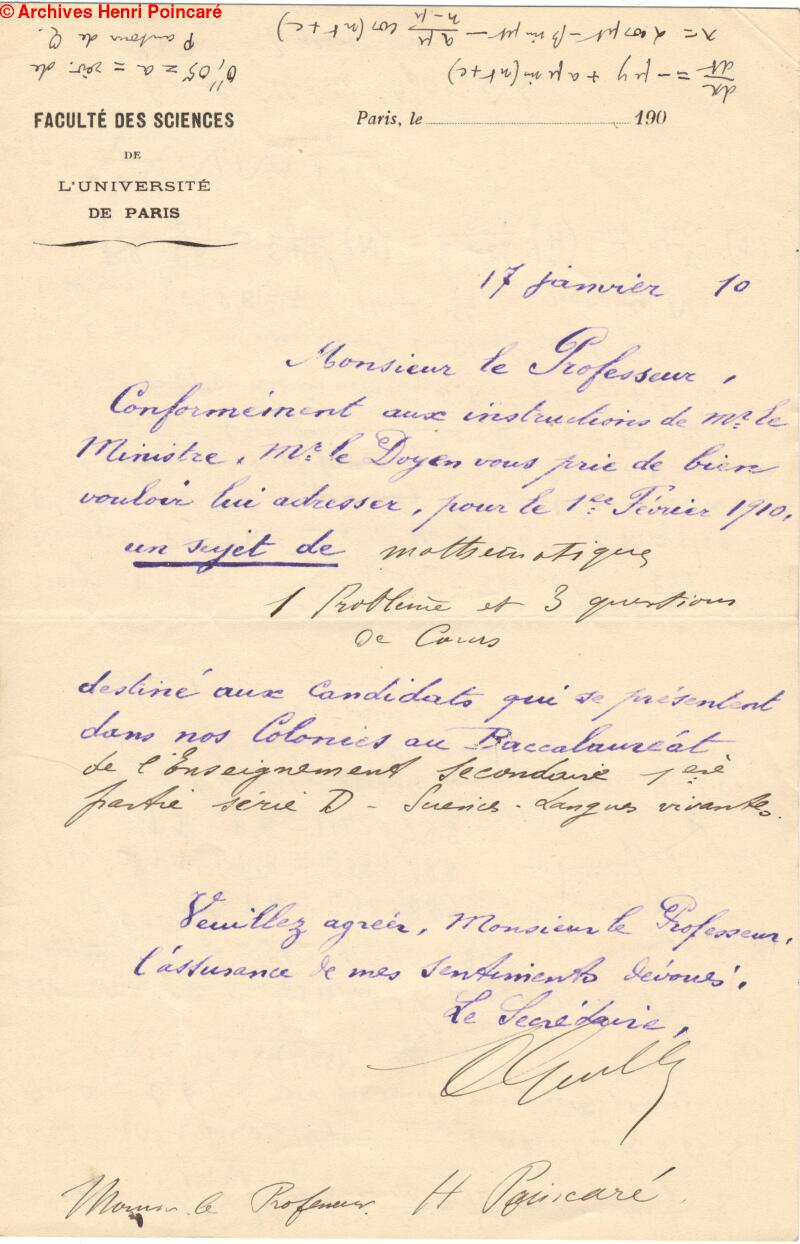 © Archives Henri Poincaré
dx/dt = - μy + aμ sin(nt+c)
x = α cos μt - β sin μt - aμ/n-μ cos(nt+c)
0",05 = a = de
autour de
FACULTÉ DES SCIENCES
DE
L'UNIVERSITÉ
DE PARIS
Paris, le 190
17 janvier 10
Monsieur le Professeur,
Conformément aux instructions de Mr. le
Ministre, Mr. le Doyen vous prie de bien
vouloir lui adresser, pour le 1er Février 1910,
un sujet de mathématiques
1 Problème et 3 questions
de Cours
destiné aux candidats qui se présentent
dans nos Colonies au Baccalauréat
de l'Enseignement secondaire 1ère
partie série D - Sciences - Langues vivantes.
Veuillez agréer, Monsieur le Professeur,
l'assurance de mes sentiments dévoués.
Le Secrétaire,
Monsieur le Professeur H Poincaré